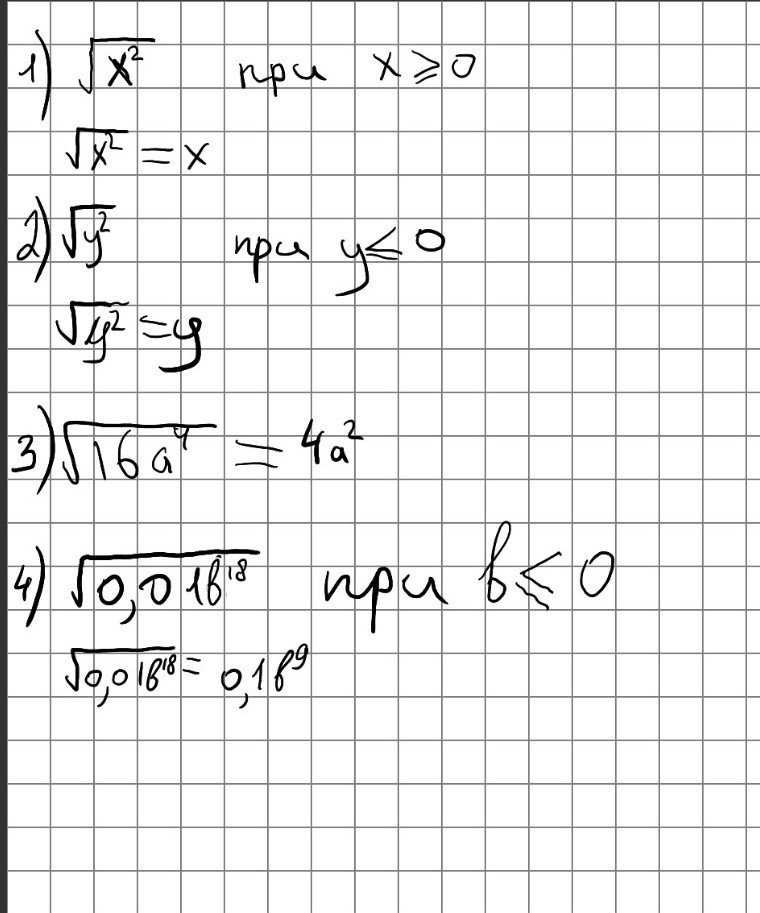 1) √x² при x ⩾ 0
√x² = x
2) √y² при y ⩽ 0
√y² = y
3) √16a⁴ = 4a²
4) √0,01b¹⁸ при b ⩽ 0
√0,01b¹⁸ = 0,1b⁹